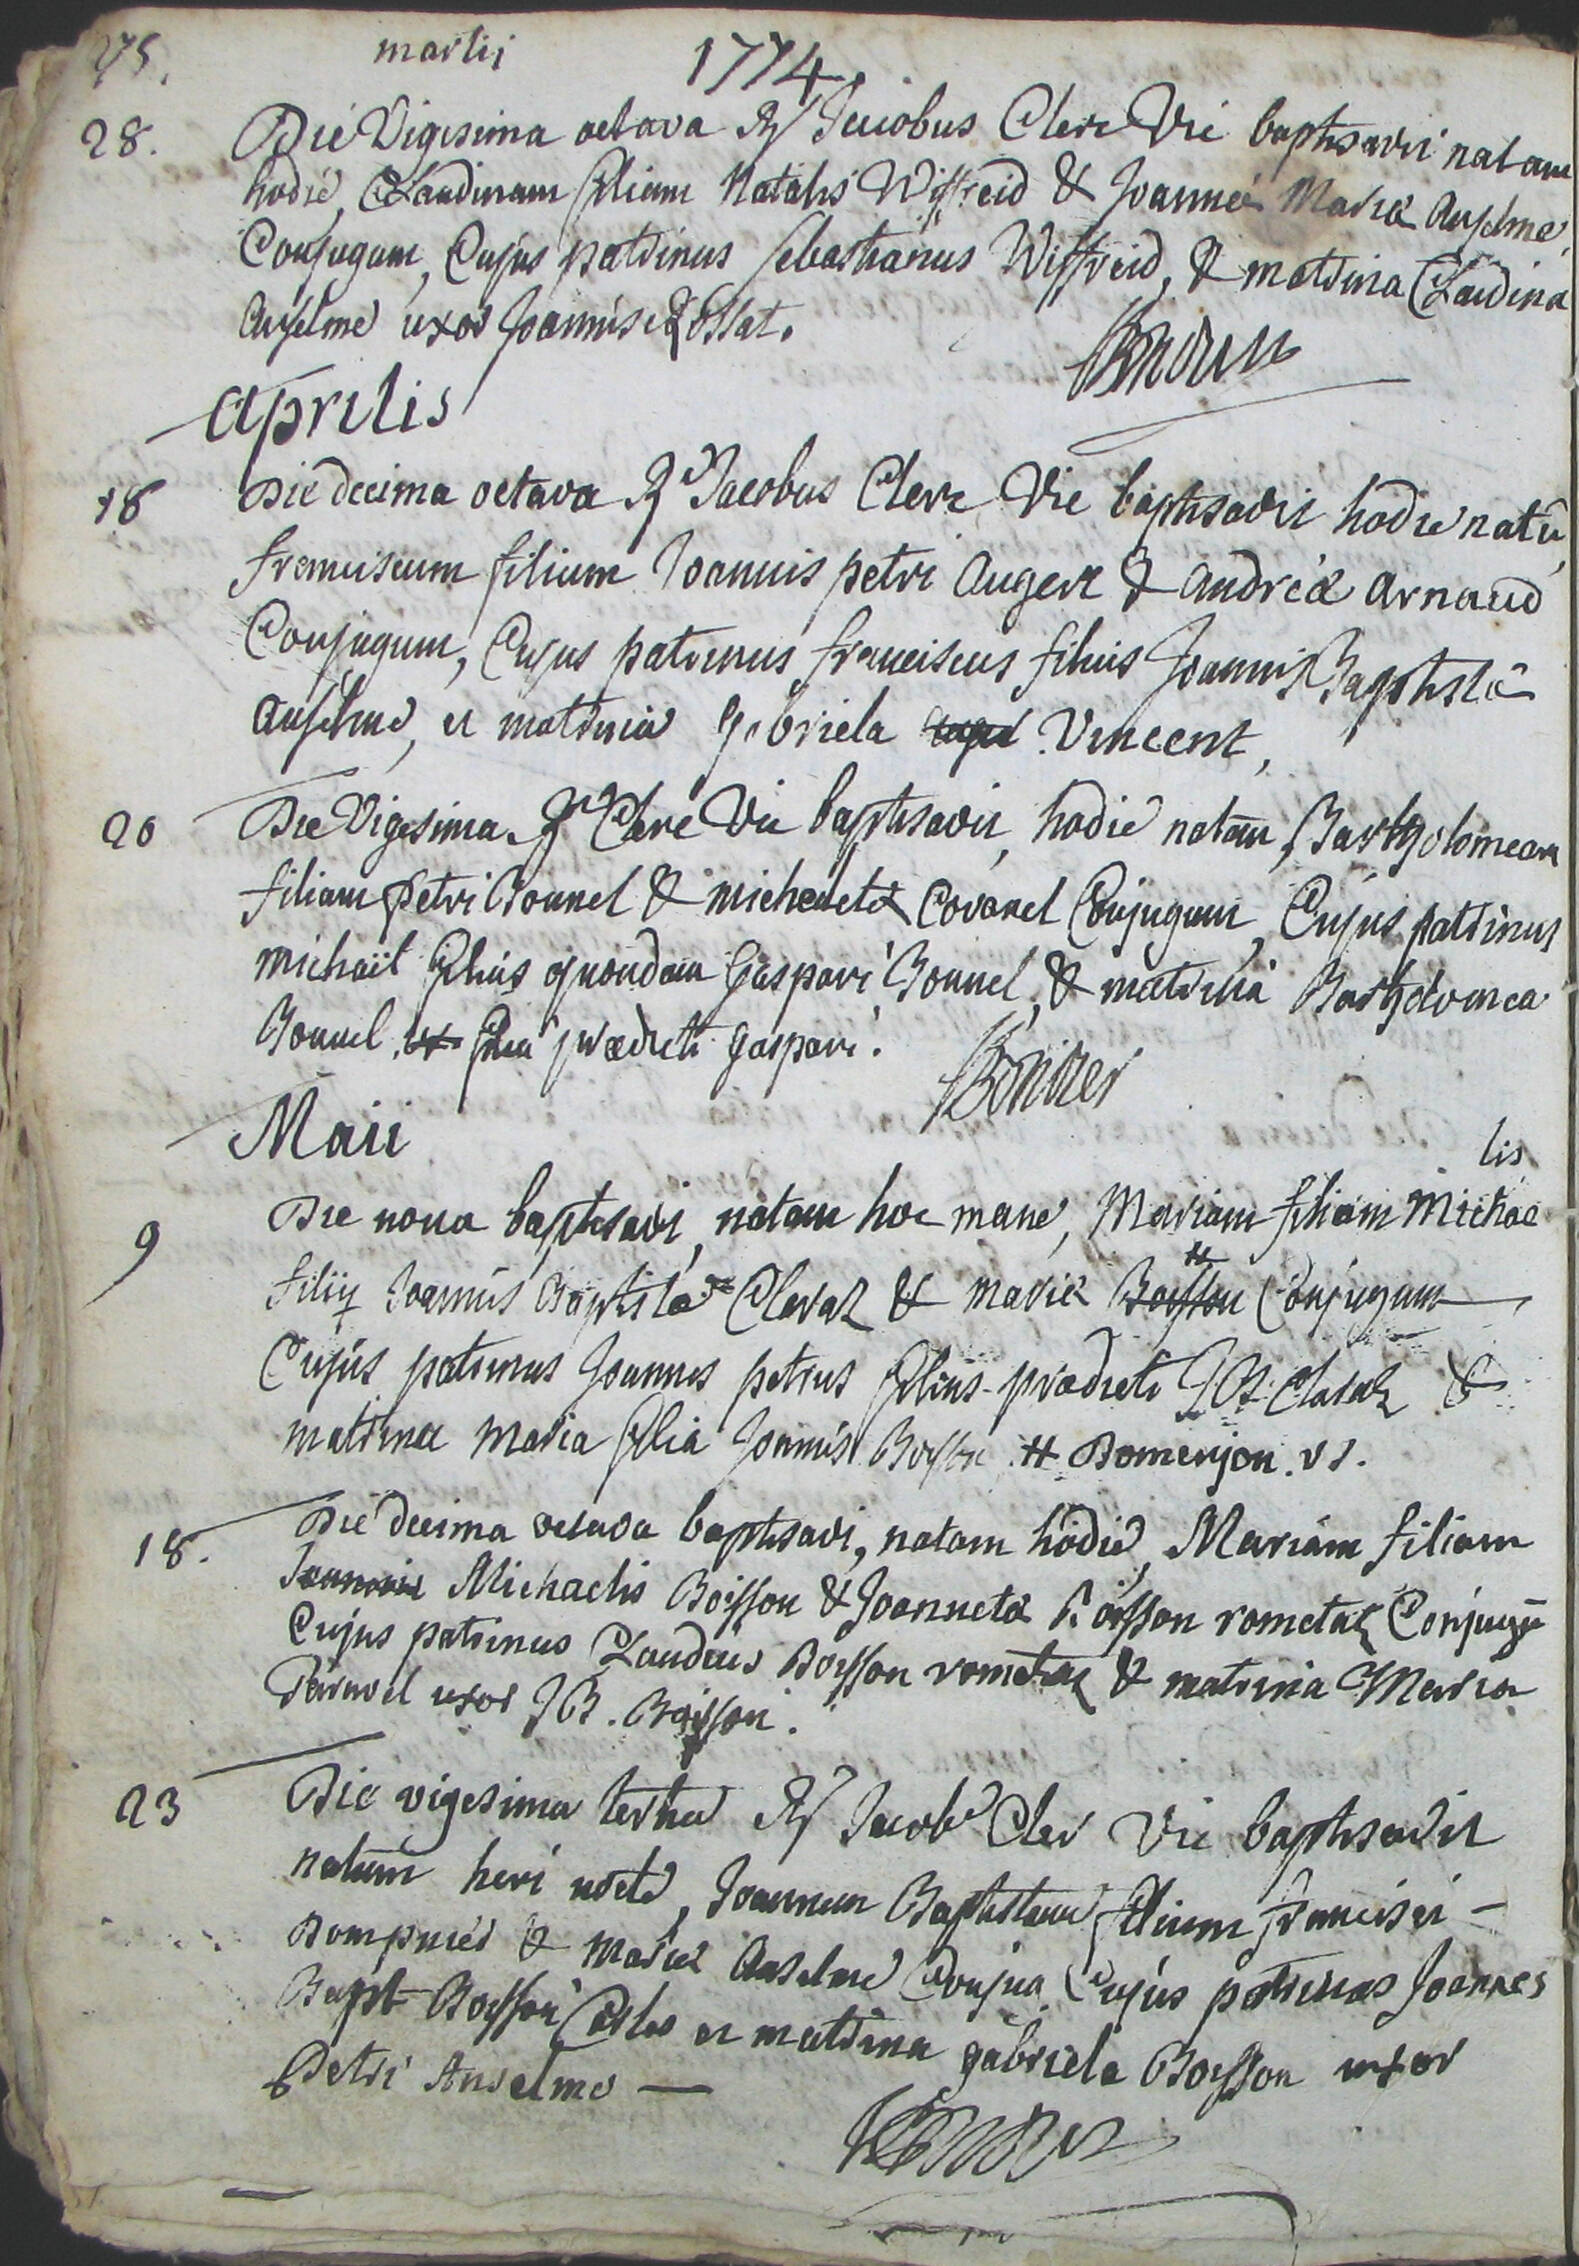 275. martii 1774.
28. Die Vigesima octava Rdus Jacobus Clerc Vic baptisavit natam
hodie, Claudinam filiam Natalis Wiffreid & Joannæ Mariæ Anselme,
Conjugum, Cujus patrinus sebastianus Wiffreid, & matrina Claudina
Anselme uxor Joannis Rossat.
aprilis
18 Die decima octava Rd Jacobus Clerc Vic baptisavit hodie natū,
franciscum filium Joannis petri Augert & andreæ arnaud
Conjugum, Cujus patrinus franciscus filius Joannis Baptistæ
anselme, et matrina gabriela Vincent,
20 Die Vigesima Rd Clerc Vic baptisavit, hodie natam, Bartholomeam
filiam petri Bonnel & michaeletæ Coranel Conjugum, Cujus patrinus
michaël filius quondam Gaspari Bonnel, & matrina Bartholomea
Bonnel filia prædicti gaspari.
Maii
lis
9 Die nona baptisavi, natam hoc mane, Mariam filiam Michae
filii Joannis Baptistæ Claraz & mariæ Boisson # Conjugum
Cujus patrinus Joannes petrus filius prædicti J B Claraz &
matrina maria filia Joannis Boisson # Domenjon. vs.
18. Die decima octava baptisavi, natam hodie, Mariam filiam
Michaelis Boisson & Joannetæ Boisson rometaz Conjugū
Cujus patrinus Claudius Boisson rometaz & matrina Maria
Paravel uxor J B. Boisson.
23 Die vigesima tertia Rd Jacobs Cler Vic baptisavit
natum heri nocte, Joannem Baptistam filium francisci
Dompnier & mariæ Anselme Conjug. Cujus patrinus Joannes
Bapt Boisson et matrina gabriela Boisson uxor
Petri Anselme